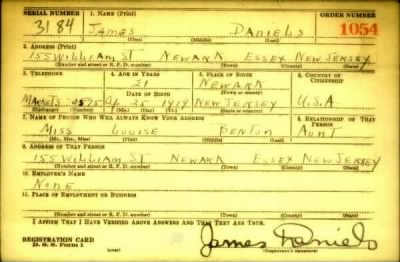 SERIAL NUMBER 1. NAME (Print) ORDER NUMBER
3184 JAMES DANIELS 1054
(First) (Middle) (Last)
2. ADDRESS (Print)
155 WILLIAM ST NEWARK ESSEX NEW JERSEY
(Number and street or R. F. D. number) (Town) (County) (State)
3. TELEPHONE 4. AGE IN YEARS 5. PLACE OF BIRTH 6. COUNTRY OF CITIZENSHIP
21 NEWARK
DATE OF BIRTH (Town or county)
25 1919 NEW JERSEY U.S.A
(Exchange) (Number) (Mo.) (Day) (Yr.) (State or country)
7. NAME OF PERSON WHO WILL ALWAYS KNOW YOUR ADDRESS 8. RELATIONSHIP OF THAT PERSON
MISS LOUISE BENTON AUNT
(Mr., Mrs., Miss) (First) (Middle) (Last)
9. ADDRESS OF THAT PERSON
155 WILLIAM ST NEWARK ESSEX NEW JERSEY
(Number and street or R. F. D. number) (Town) (County) (State)
10. EMPLOYER'S NAME
NONE
11. PLACE OF EMPLOYMENT OR BUSINESS
(Number and street or R. F. D. number) (Town) (County) (State)
I AFFIRM THAT I HAVE VERIFIED ABOVE ANSWERS AND THAT THEY ARE TRUE.
REGISTRATION CARD
D. S. S. Form 1 (over) James Daniels
(Registrant's signature)